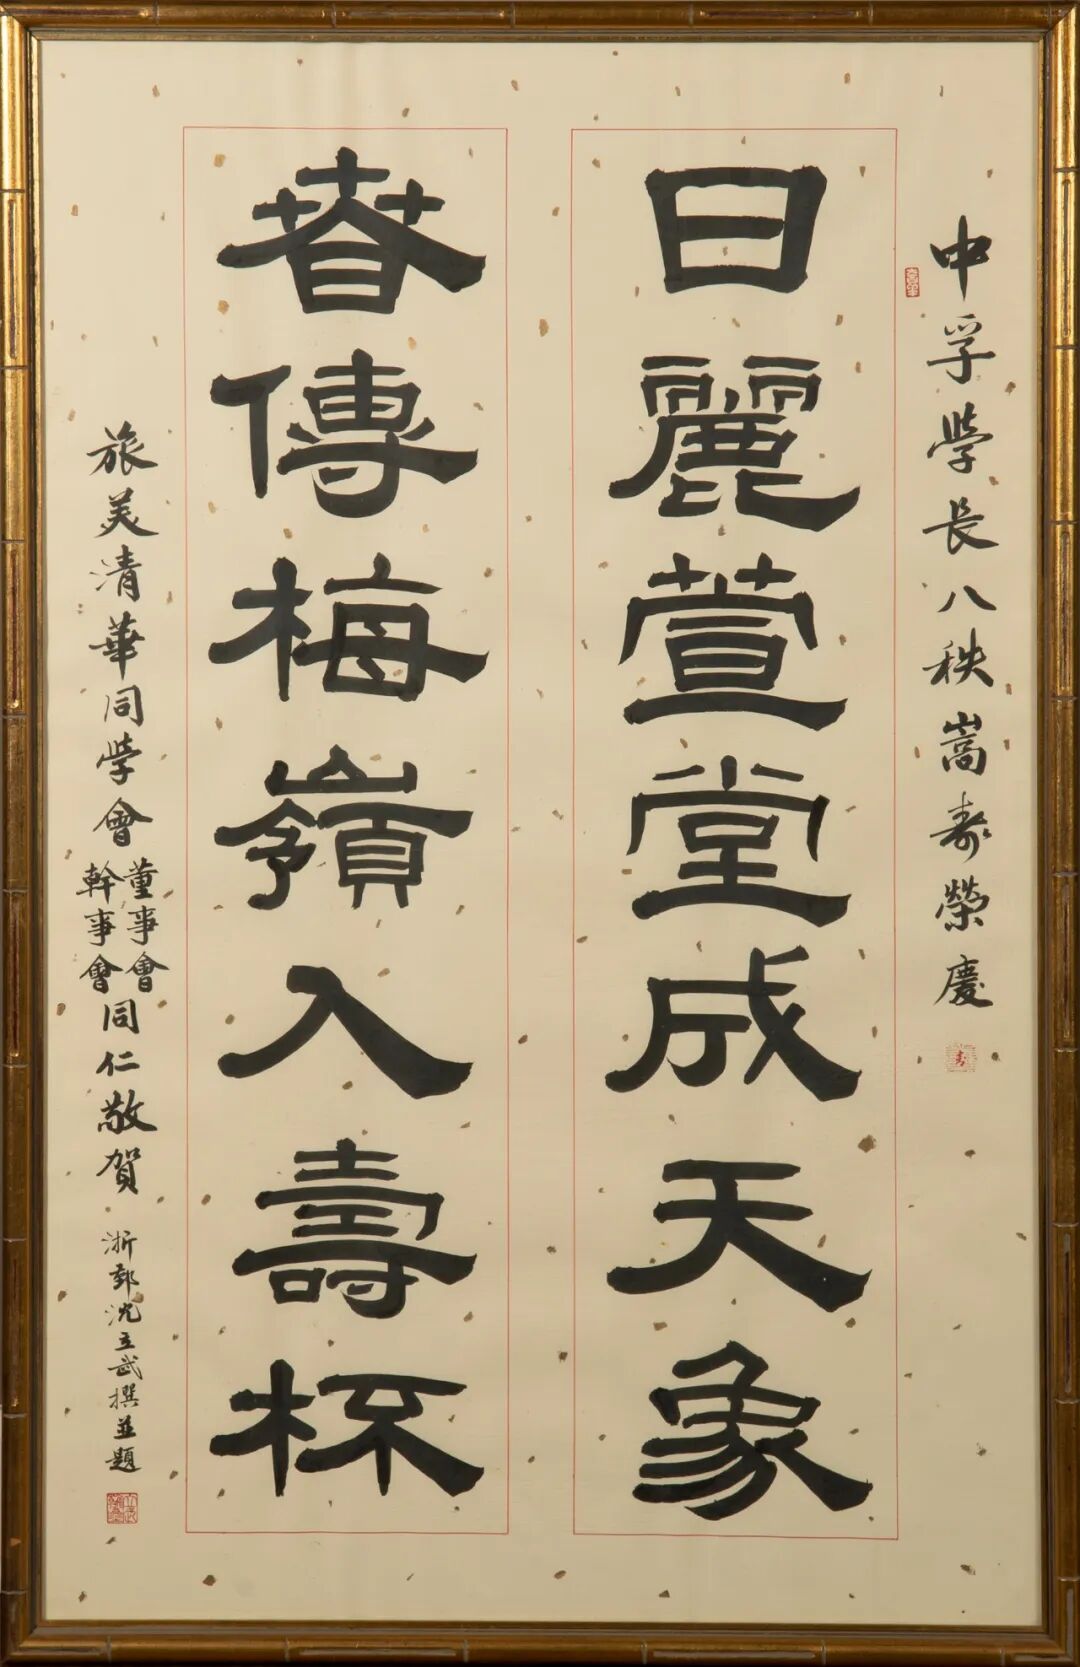 中孚學長八秩嵩壽榮慶
日麗萱堂成天象
春傳梅嶺入壽杯
旅美清華同學會董事會幹事會同仁敬賀
浙鄞沈立武撰並題